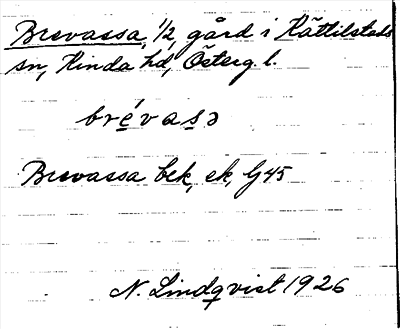 Brevassa, 1/2, gård i Kättilstads
sn, Kinda hd, Österg. l.
brévasə
Brevassa bek, ek, G45
N. Lindqvist 1926